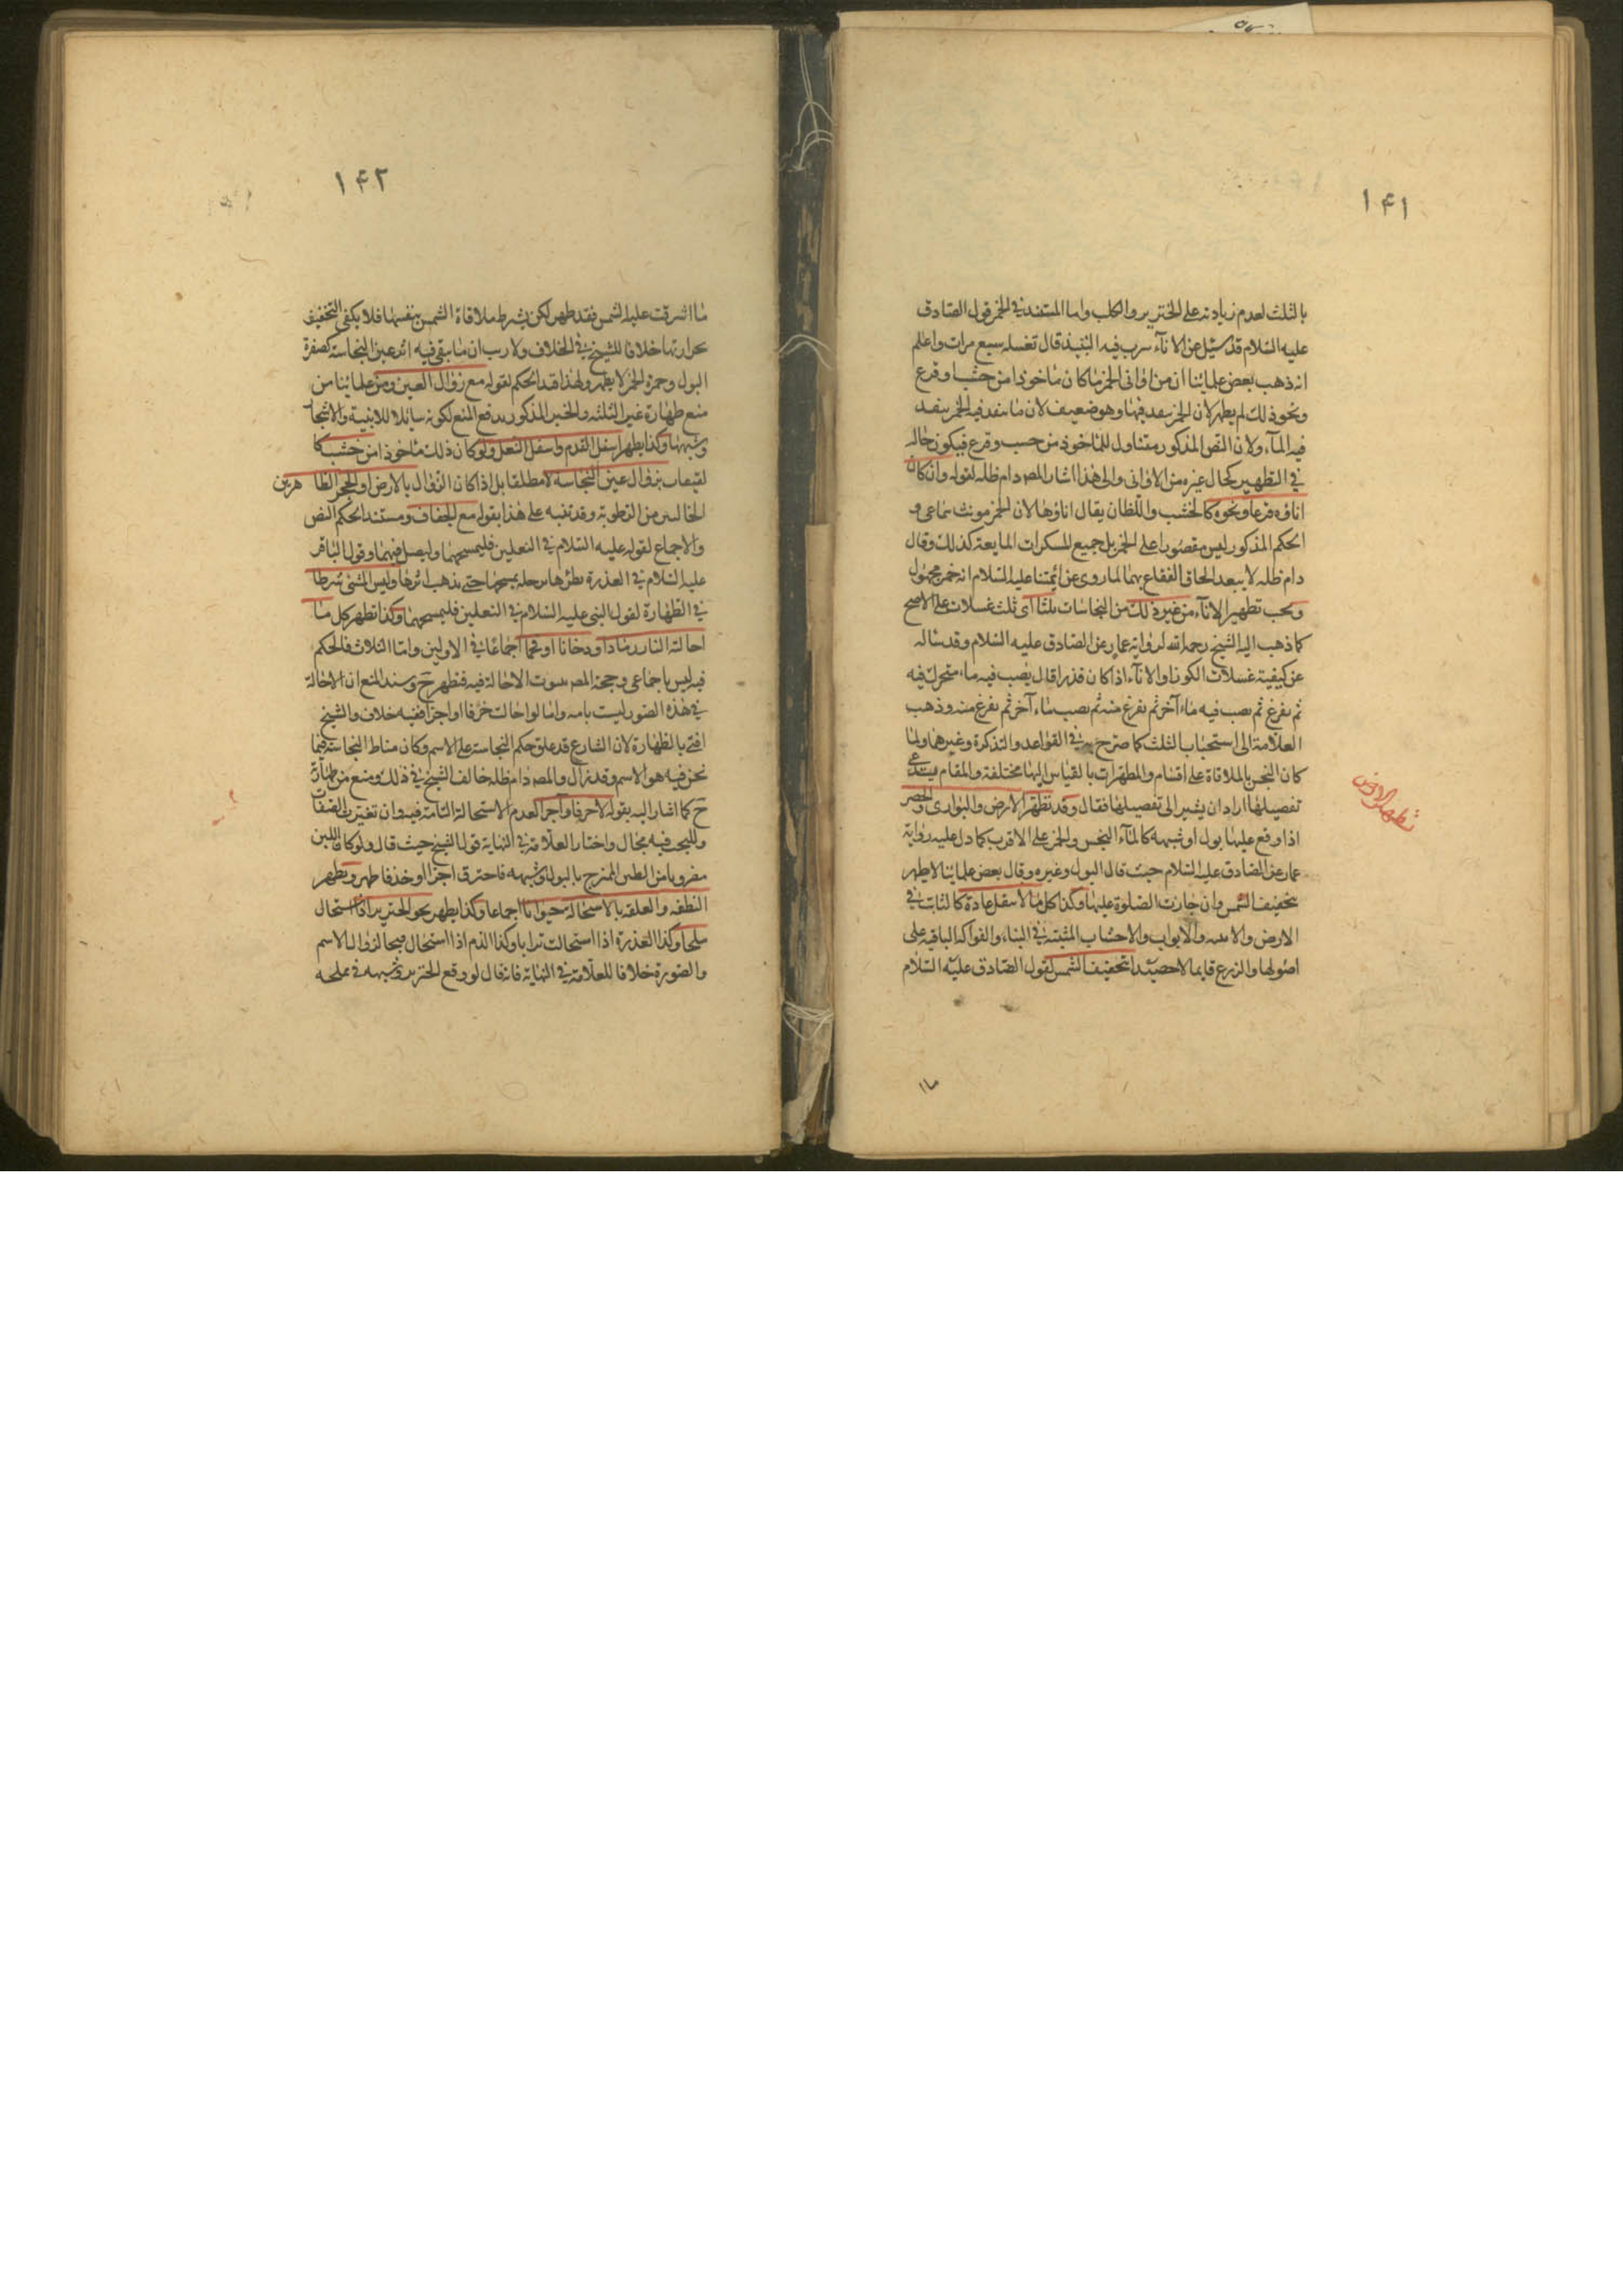 ١٤١
بالثلث لعدم زيادته على الخنزير والكلب واما المستند في الخمر قول الصادق
عليه السلام قد سئل عن الاناء يشرب فيه النبيذ قال تغسله سبع مرات واعلم
انه ذهب بعض علمائنا ان من اوانى الخمر ما كان ماخوذا من خشب او قرع
ونحو ذلك لم يطهر لان الخمر ينفد فيها وهو ضعيف لان ما ينفد فيه الخمر ينفد
فيه الماء ولان النص المذكور متناول للماخوذ من خشب وقرع فيكون حاله
في التطهير كحال غيره من الاوانى والى هذا اشار المصـ دام ظله لقوله وان كان
اناؤه قرعا ونحوه كالخشب واللظان يقال اناؤها لان الخمر مونث سماعى و
الحكم المذكور ليس مقصورا على الخمر بل جميع المسكرات المايعة كذلك وقال
دام ظله لا يبعد الحاق الفقاع بهما لما روى عن ائمتنا عليه السلام انه خمر مجهول
ويجب تطهير الاناء من غير ذلك من النجاسات ثلثا اى ثلث غسلات على الاصح
كما ذهب اليه الشيخ رحمه الله لرواية عمار عن الصادق عليه السلام وقد سأله
عن كيفية غسلات الكوز او الاناء اذا كان قذرا قال يصب فيه ماء متحرك فيه
ثم يفرغ ثم يصب فيه ماء آخر ثم يفرغ منه ثم يصب ماء آخر ثم يفرغ منه وذهب
العلامة الى استحباب الثلث كما صرح به في القواعد والتذكرة وغيرهما ولما
كان النجس بالملاقاة على اقسام والمطهرات بالقياس اليها مختلفة والمقام يستدعى
تفصيلها اراد ان يشير الى تفصيلها فقال وقد تطهر الارض والبوارى والحصر
تطهر الارض
اذا وقع عليها بول او شبهه كالماء النجس والخمر على الاقرب كما دل عليه رواية
عمار عن الصادق عليه السلام حيث قال البول وغيره وقال بعض علمائنا لا يطهر
بتجفيف الشمس وان جازت الصلوة عليها وكذا كل ما لا ينقل عادة كالنابت في
الارض والابنية والابواب والاخشاب المثبتة في البناء والفواكه الباقية على
اصولها والزرع قايما لا حصيدا بتجفيف الشمس لقول الصادق عليه السلام
ما
١٤٢
ما اشرقت عليه الشمس فقد طهر لكن بشرط ملاقاة الشمس بنفسها فلا يكفى التجفيف
بحرارتها خلافا للشيخ في الخلاف ولا ريب ان ما بقى فيه اثر عين النجاسة كصفرة
البول وحمرة الخمر لا يطهر ولهذا قيد الحكم بقوله مع زوال العين ومن علمائنا من
منع طهارة غير الثلثه والخبر المذكور يدفع المنع لكونه شاملا للابنية والاشجار
وشبهها وكذا يطهر اسفل القدم واسفل النعل ولو كان ذلك ماخوذا من خشب كا
لقبقاب بزوال عين النجاسة لا مطلقا بل اذا كان الزوال بالارض او الحجر الطا هرين
الخاليين من الرطوبة وقد تنبه على هذا بقوله مع الجفاف ومستند الحكم النص
والاجماع لقوله عليه السلام في النعلين فليمسحهما وليصل فيهما وقول الباقر
عليه السلام في العذرة يطؤها برجله يمسحها حتى يذهب اثرها وليس المشى شرطا
في الطهارة لقول النبى عليه السلام في النعلين فليمسحهما وكذا تطهر كل ما
احالته النار رمادا او دخانا او فحما اجماعا في الاولين واما الثلاث فالحكم
فيه ليس باجماعى وحجة المصـ ثبوت الاحالة فيه فتطهر ح وسند المنع ان الاحالة
في هذه الصور ليست تامه واما لو احالت خزفا او اجرا ففيه خلاف والشيخ
افتى بالطهارة لان الشارع قد علق حكم النجاسة على الاسم وكان مناط النجاسة فيما
نحن فيه هو الاسم وقد زال والمصـ دام ظله خالف الشيخ في ذلك ومنع من طهارته
ح كما اشار اليه بقوله لا خزفا وآجرا لعدم الاستحالة التامة فيه وان تغيرت الصفات
وللبحث فيه مجال واختار العلامة في النهاية قول الشيخ حيث قال ولو كان اللبن
مضروبا من الطين الممتزج بالبول او شبهه فاحترق اجرا او خزفا طهر وتطهر
النطفه والعلقه بالاستحالة حيوانا اجماعا وكذا يطهر نحو الخنزير اذا استحال
ملحا وكذا العذرة اذا استحالت ترابا وكذا الدم اذا استحال قيحا لزوال الاسم
والصورة خلافا للعلامة في النهاية فانه قال لو وقع الخنزير وشبهه في مملحه